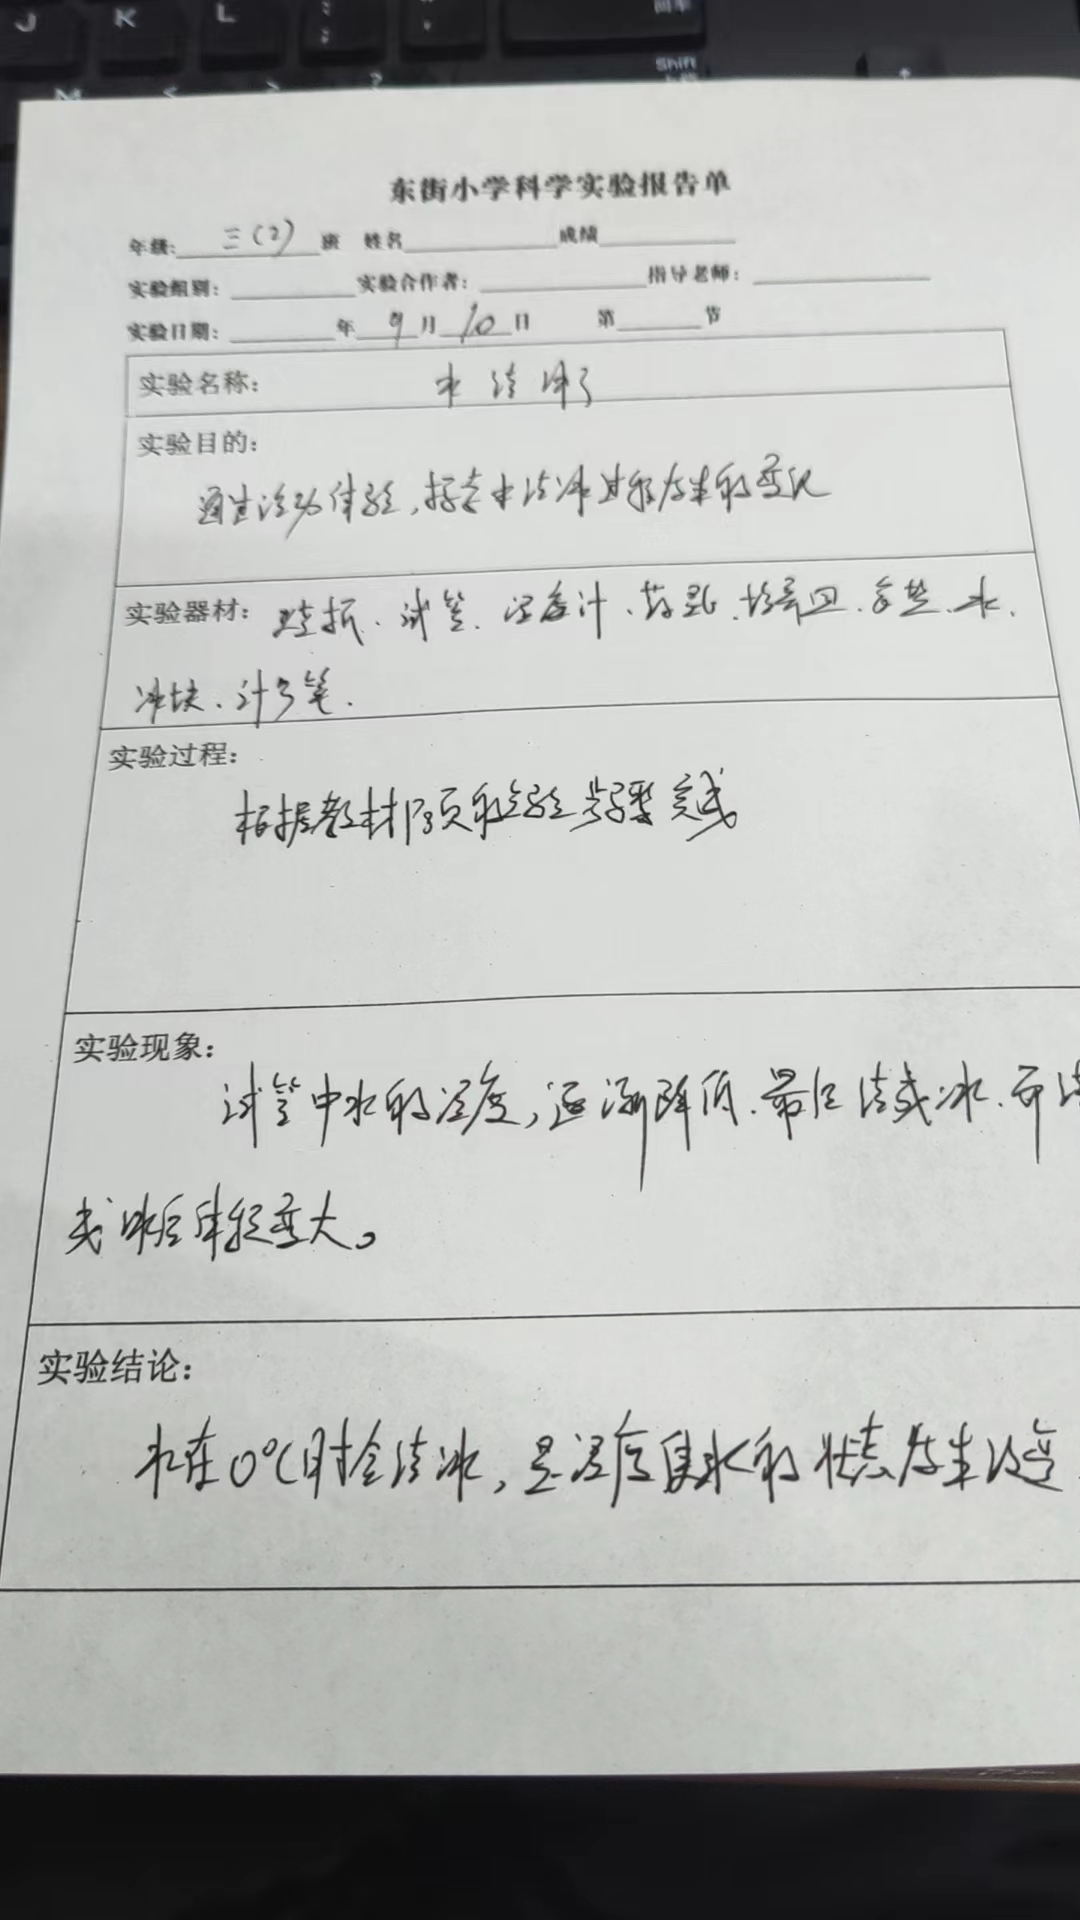 J K L ; : " '
M < > ? Shift
东街小学科学实验报告单
年级: 三(2) 班 姓名 成绩
实验组别: 实验合作者: 指导老师:
实验日期: 年 9 月 10 日 第 节
实验名称: 水结冰了
实验目的:
通过活动体验,探索水结冰过程发生的变化
实验器材: 试管、温度计、药匙、培养皿、食盐、水、
冰块、记号笔.
实验过程:
根据教材 页的实验步骤完成
实验现象:
试管中水的温度,逐渐降低、最后结成冰、而结
成冰后体积变大。
实验结论:
水在0℃时会结冰,是温度使水的状态发生改变